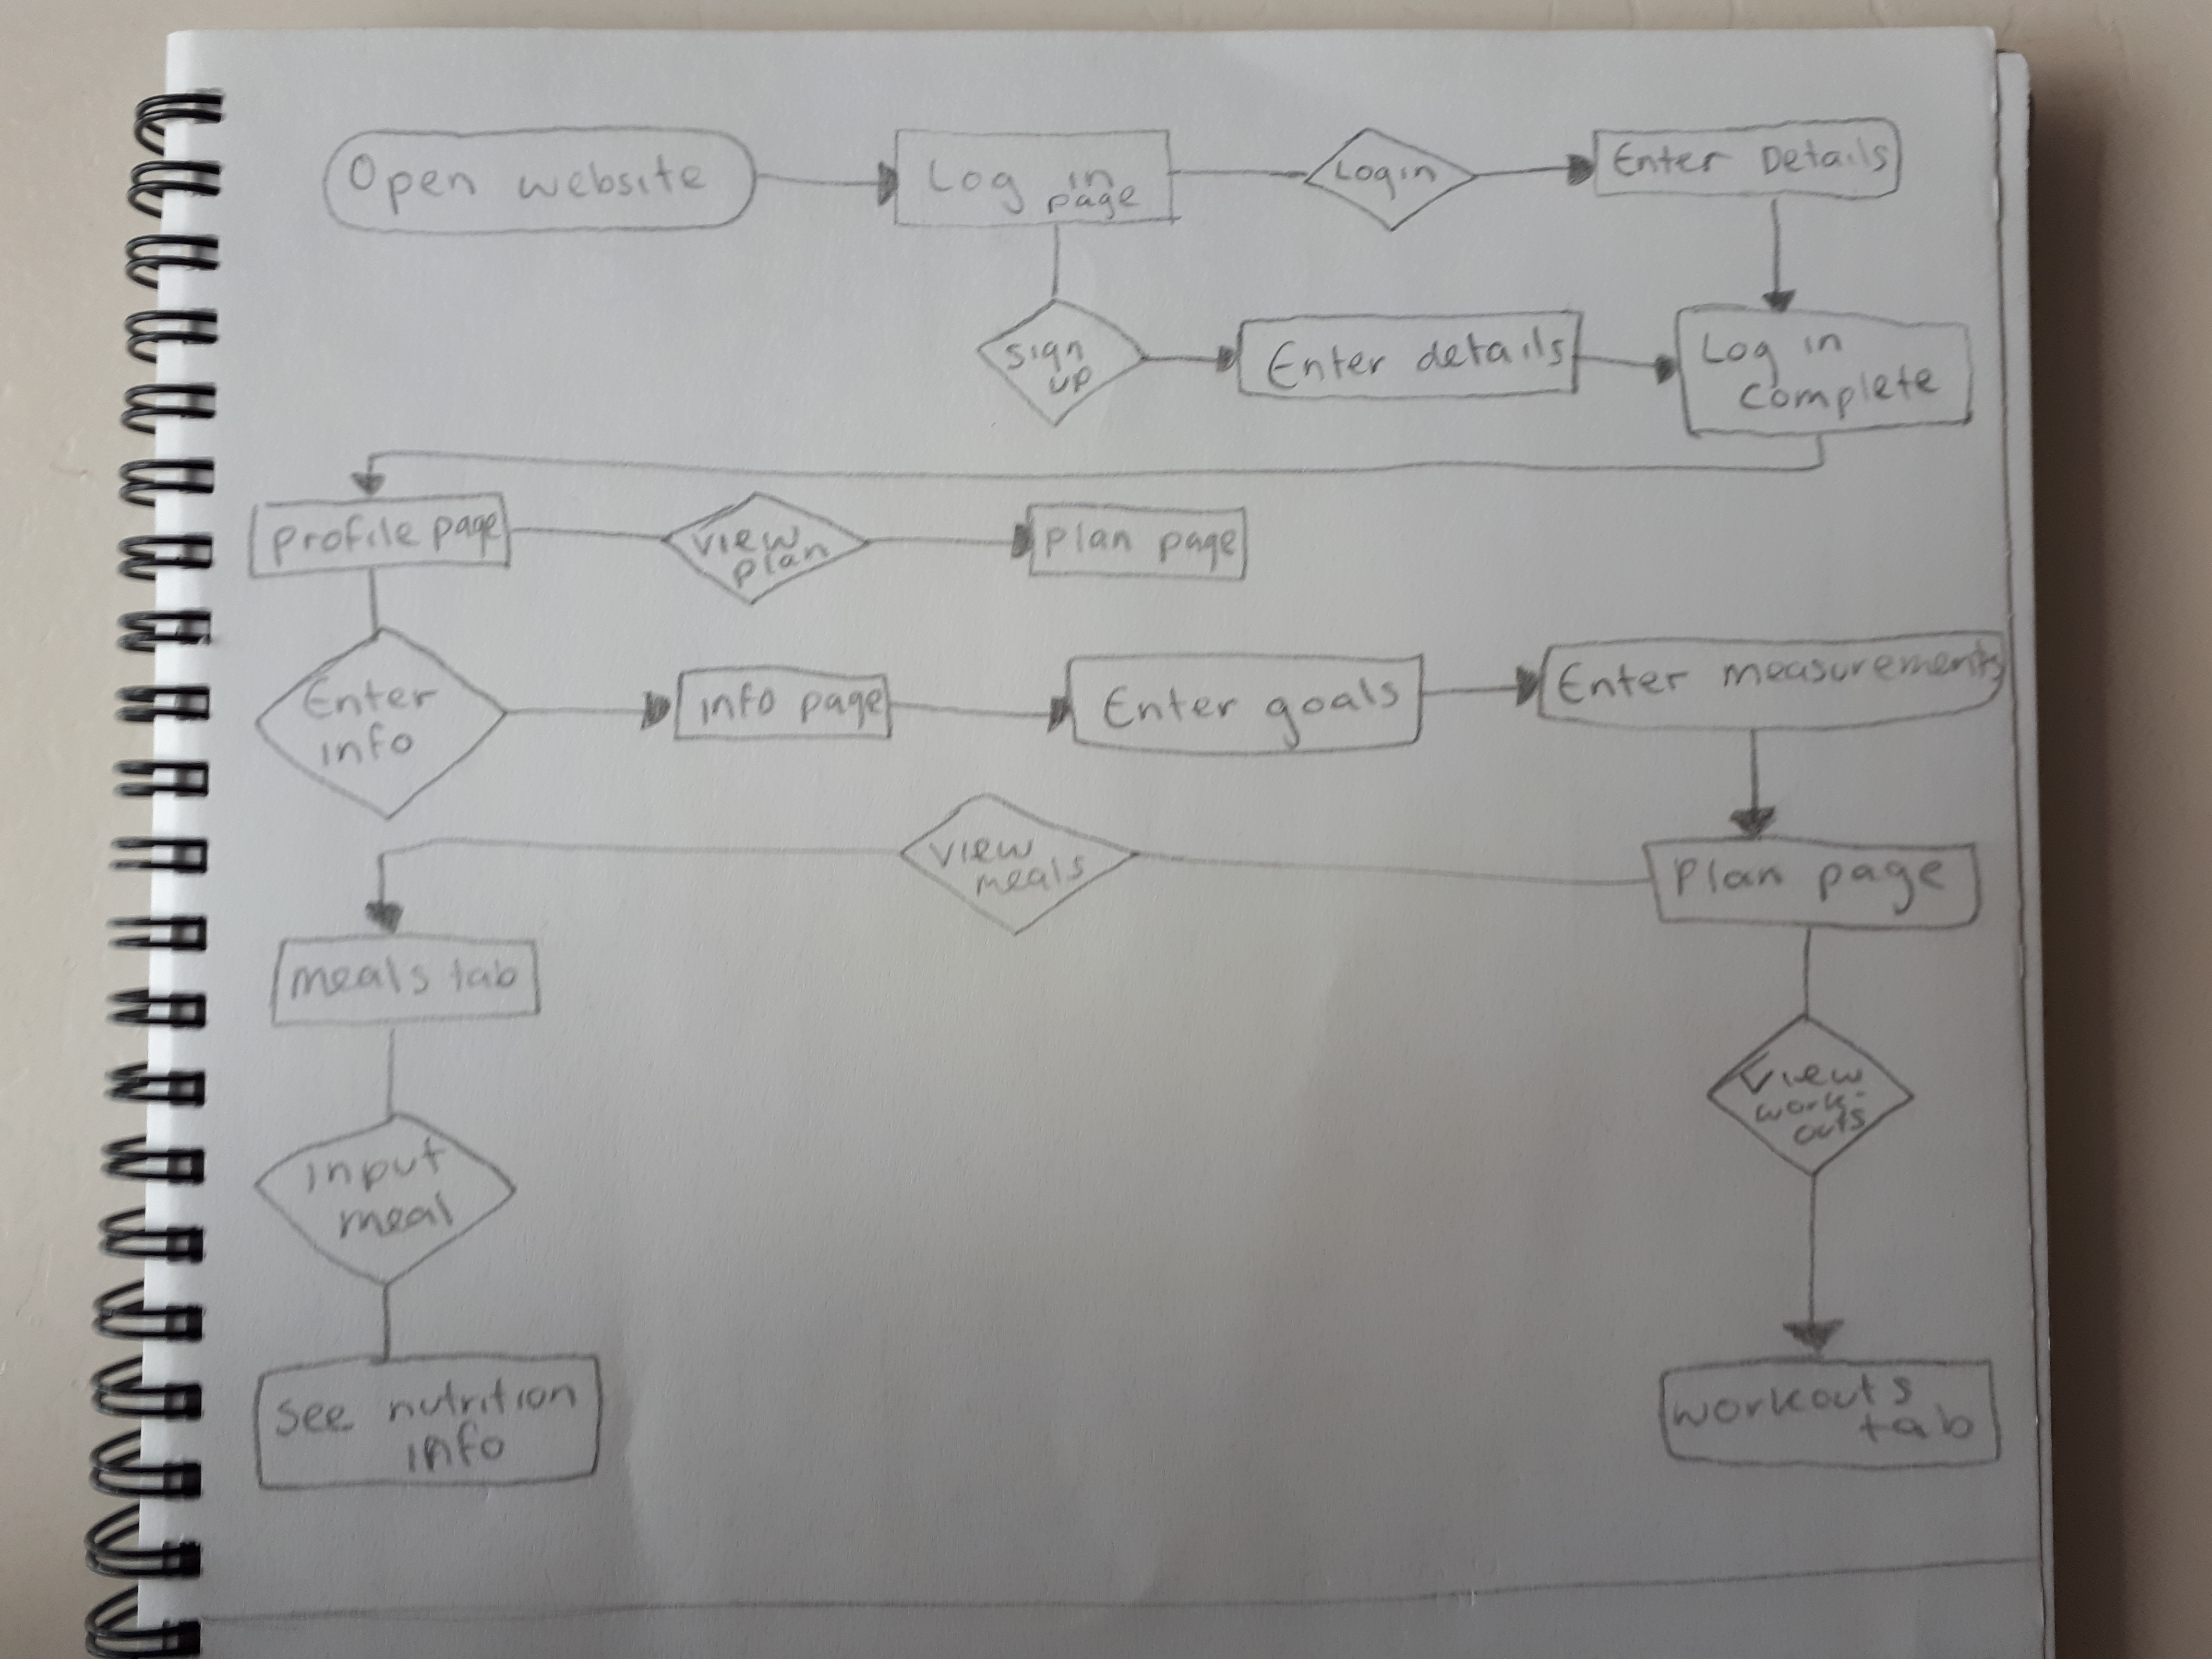 Open website
Log in
page
Login
Enter Details
sign
up
Enter details
Log in
complete
profile page
view
plan
plan page
Enter
info
info page
Enter goals
Enter measurements
view
meals
Plan page
meals tab
View
work-
outs
input
meal
see nutrition
info
workouts
tab